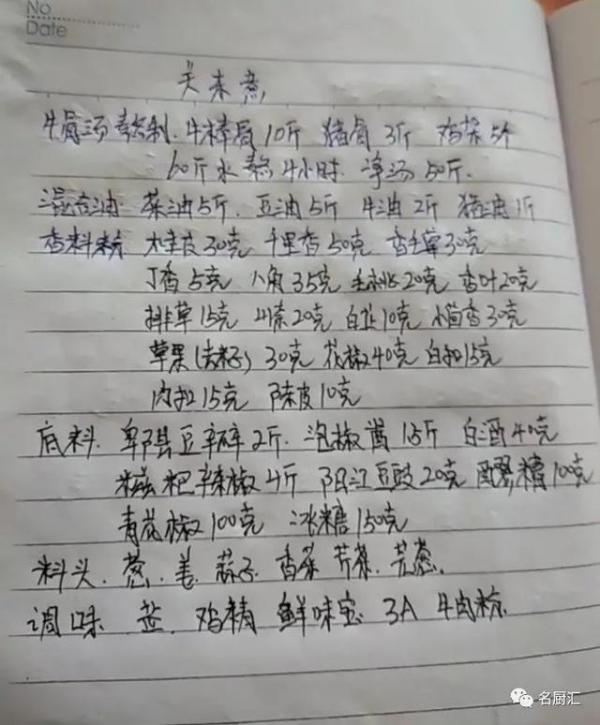 No
Date
关东煮
牛骨汤熬制. 牛棒骨10斤 猪骨3斤 鸡架5个
60斤水熬4小时. 净汤50斤.
混合油 菜油5斤. 豆油5斤 牛油2斤 猪油1斤
香料粉 木桂皮30克 千里香50克 香毛草30克
丁香5克 八角35克 毛桃20克 香叶20克
排草15克 山奈20克 白芷10克 小茴香30克
草果(去籽) 30克 花椒40克 白扣15克
肉扣15克 陈皮10克
底料. 郫县豆瓣2斤. 泡椒酱 1.5斤 白酒40克
糍粑辣椒4斤 阳江豆豉20克 醪糟100克
青花椒100克 冰糖150克
料头. 葱. 姜. 蒜子. 香菜 芹菜.
调味 盐. 鸡精 鲜味宝 3A 牛肉粉
名厨汇